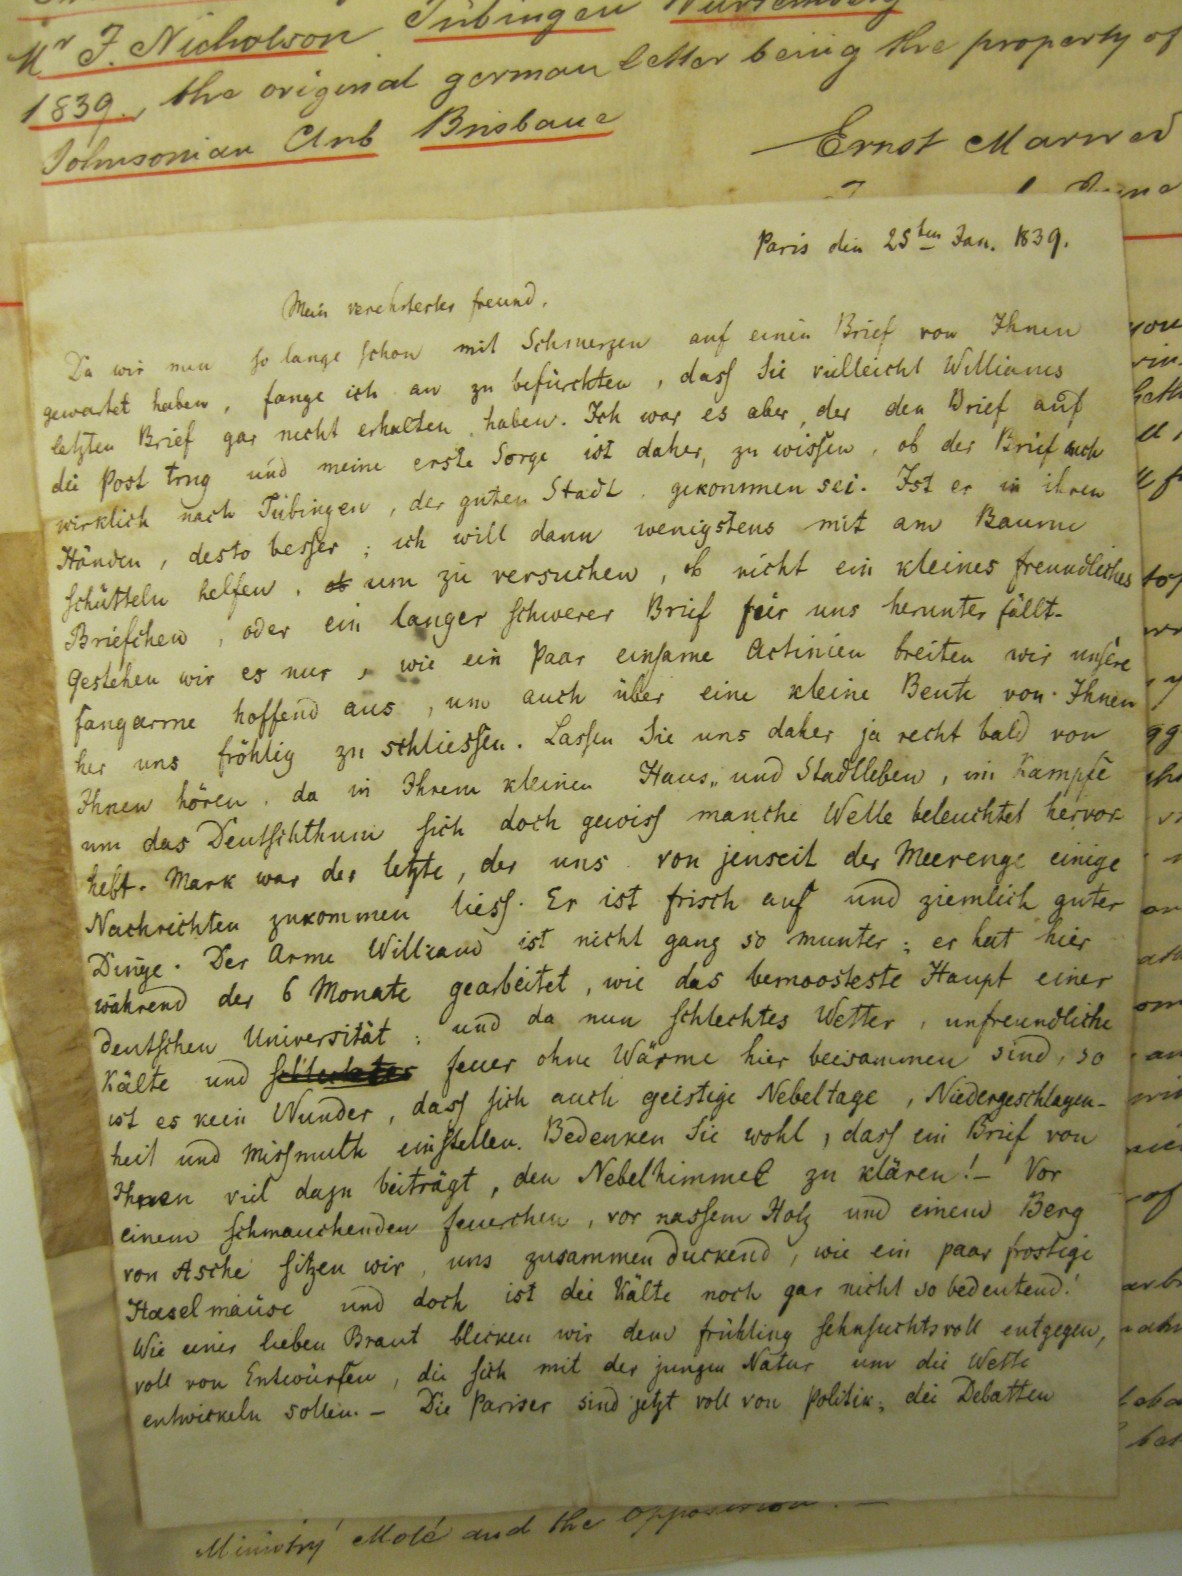 Tübingen Würtemberg
Mr F. Nicholson
1839, the original german letter being the property of
Johnsonian Club Brisbane
Ernst
Paris den 25ten Jan. 1839.
Mein verehrtester Freund,
Da wir nun so lange schon mit Schmerzen auf einen Brief von Ihnen
gewartet haben, fange ich an zu befürchten, dass Sie vielleicht Williams
letzten Brief gar nicht erhalten haben. Ich war es aber, der den Brief auf
die Post trug und meine erste Sorge ist daher, zu wissen, ob der Brief auch
wirklich nach Tübingen, der guten Stadt, gekommen sei. Ist er in ihren
Händen, desto besser; ich will dann wenigstens mit am Baume
schütteln helfen, um zu versuchen, ob nicht ein kleines freundliches
Briefchen, oder ein langer schwerer Brief für uns herunter fällt.
Gestehen wir es nur, wie ein paar einsame Actinien breiten wir unsere
Fangarme hoffend aus, um auch über eine kleine Beute von Ihnen
her uns fröhlig zu schliessen. Lassen Sie uns daher ja recht bald von
Ihnen hören, da in Ihrem kleinen Haus- und Stadtleben, im Kampfe
um das Deutschthum sich doch gewiss manche Welle beleuchtet hervor
hebt. Mark war der letzte, der uns von jenseit der Meerenge einige
Nachrichten zukommen liess. Er ist frisch auf und ziemlich guter
Dinge. Der Arme William ist nicht ganz so munter; er hat hier
während der 6 Monate gearbeitet, wie das bemoosteste Haupt einer
deutschen Universität; und da nun schlechtes Wetter, unfreundliche
Kälte und Feuer ohne Wärme hier beisammen sind, so
ist es kein Wunder, dass sich auch geistige Nebeltage, Niedergeschlagen-
heit und Missmuth einstellen. Bedenken Sie wohl, dass ein Brief von
Ihnen viel dazu beiträgt, den Nebelhimmel zu klären! – Vor
einem schmauchenden Feuerchen, vor nassem Holz und einem Berg
von Asche sitzen wir, uns zusammen duckend, wie ein paar frostige
Haselmäuse und doch ist die Kälte noch gar nicht so bedeutend!
Wie einer lieben Braut blicken wir dem Frühling sehnsuchtsvoll entgegen,
voll von Entwürfen, die sich mit der jungen Natur um die Wette
entwickeln sollen. – Die Pariser sind jetzt voll von Politik; die Debatten
Ministry Molé and the opposition. –